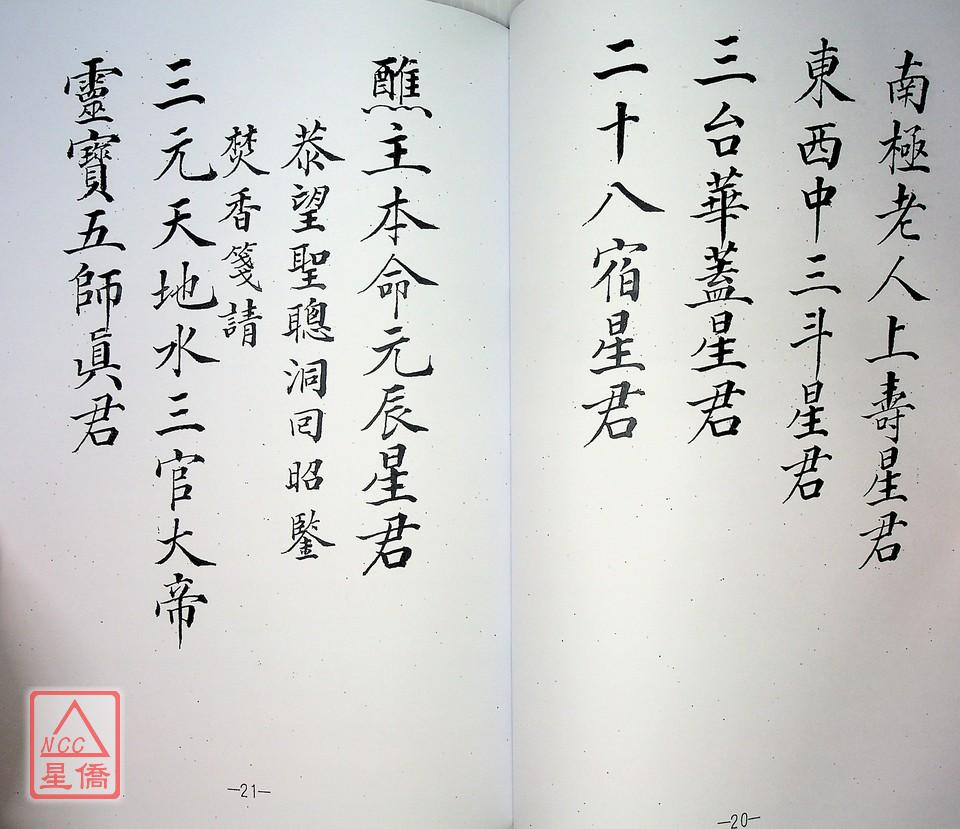 南極老人上壽星君
東西中三斗星君
三台華蓋星君
二十八宿星君
-20-
醮主本命元辰星君
恭望聖聰洞回昭鑒
焚香箋請
三元天地水三官大帝
靈寶五師眞君
-21-
NCC
星僑